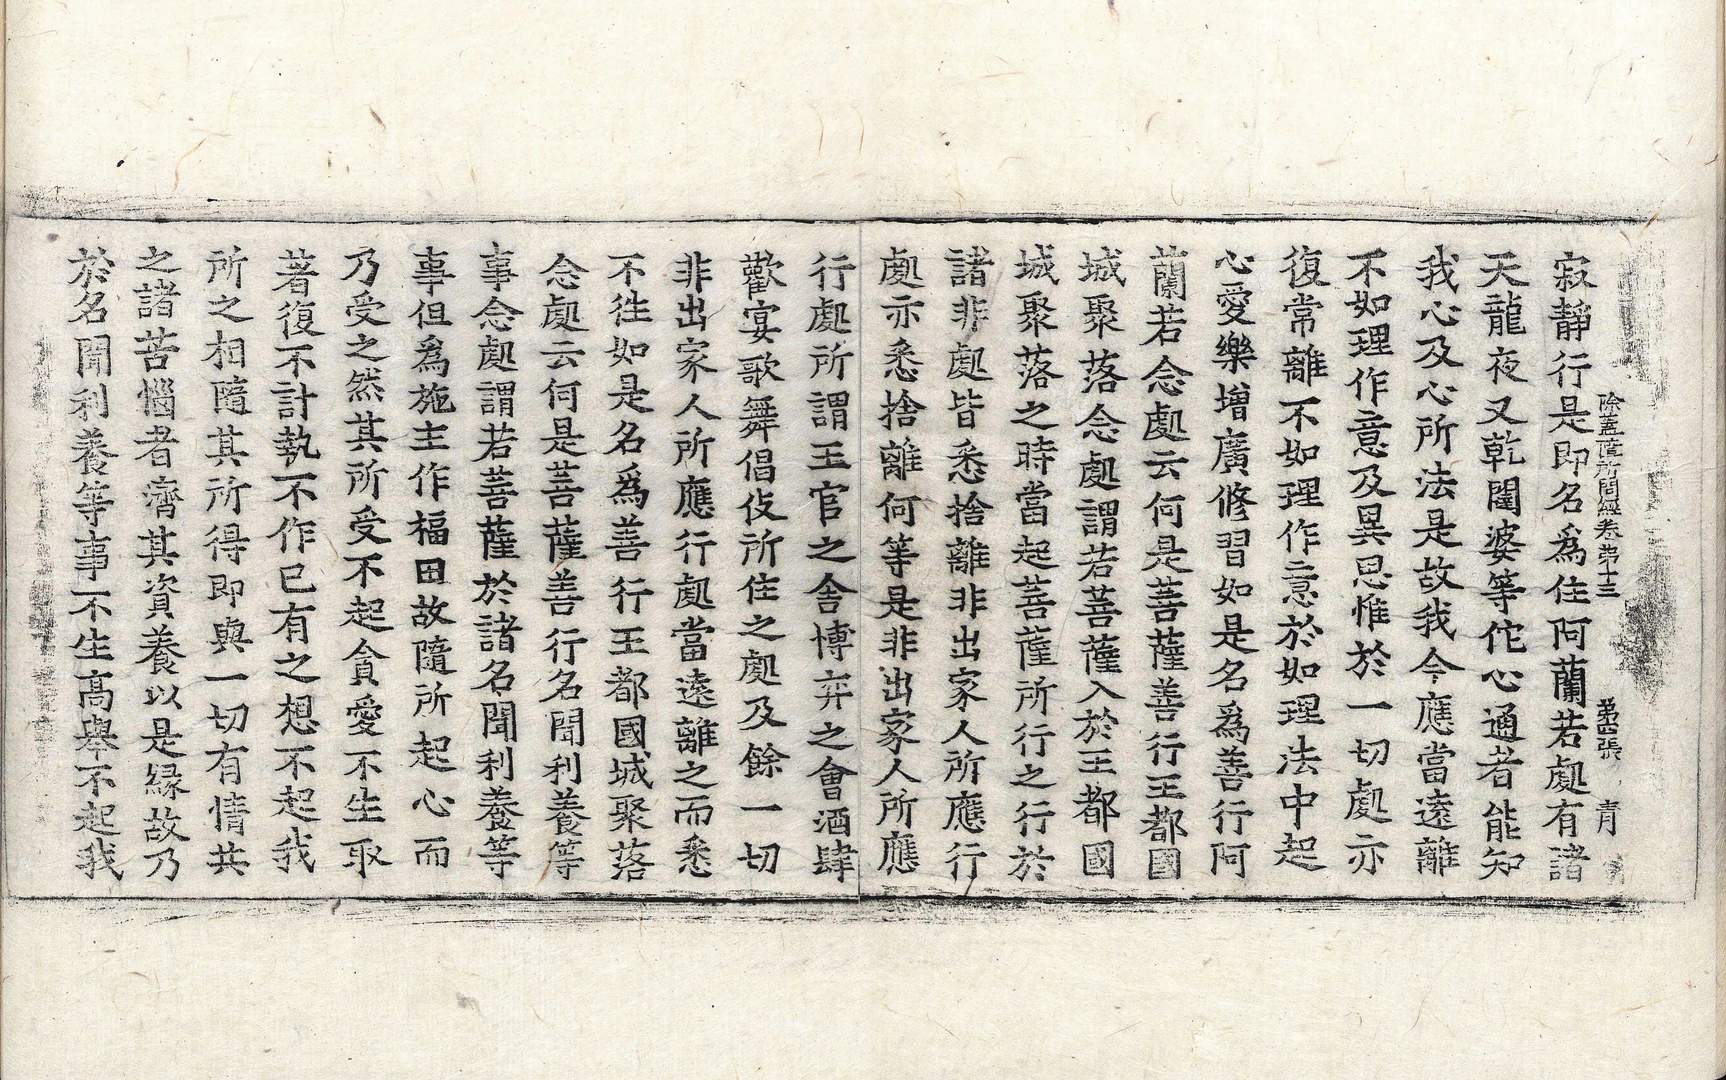 除蓋障所問經卷第十三　第四張　青
寂靜行是即名爲住阿蘭若處有諸
天龍夜叉乾闥婆等佗心通者能知
我心及心所法是故我今應當遠離
不如理作意及異思惟於一切處亦
復常離不如理作意於如理法中起
心愛樂增廣修習如是名爲善行阿
蘭若念處云何是菩薩善行王都國
城聚落念處謂若菩薩入於王都國
城聚落之時當起菩薩所行之行於
諸非處皆悉捨離非出家人所應行
處亦悉捨離何等是非出家人所應
行處所謂王官之舍博弈之會酒肆
歡宴歌舞倡伎所住之處及餘一切
非出家人所應行處當遠離之而悉
不徃如是名爲善行王都國城聚落
念處云何是菩薩善行名聞利養等
事念處謂若菩薩於諸名聞利養等
事但爲施主作福田故隨所起心而
乃受之然其所受不起貪愛不生取
著復不計執不作已有之想不起我
所之相隨其所得即與一切有情共
之諸苦惱者濟其資養以是縁故乃
於名聞利養等事不生高舉不起我